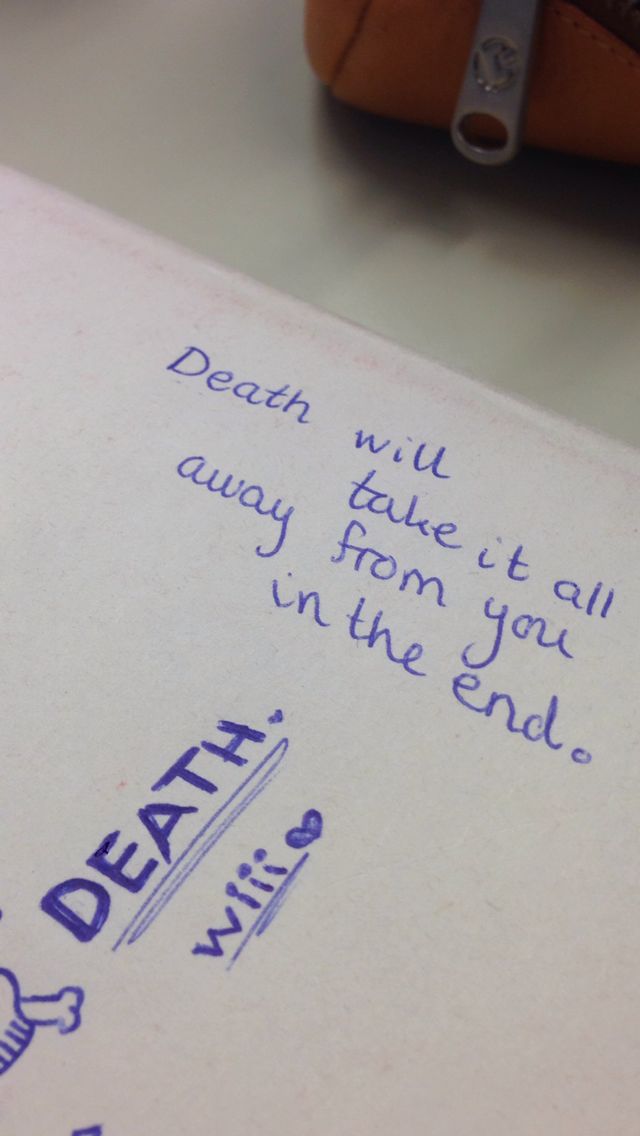 Death will
take it all
away from you
in the end.
DEATH.
wiii